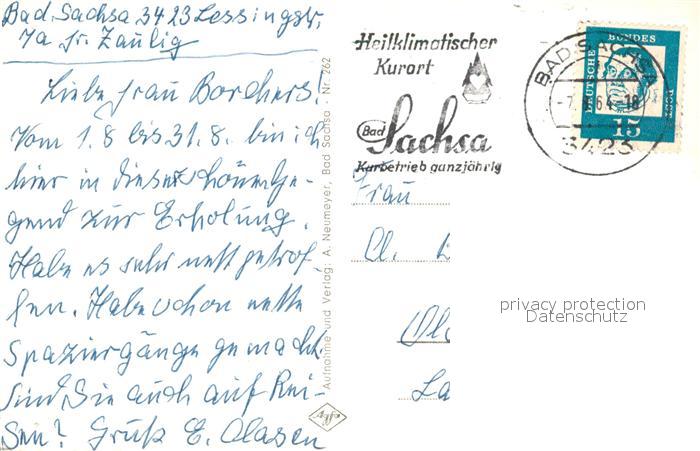 Bad Sachsa 3423 Lessingstr.
7a Fr. Zaulig
Liebe Frau Borchers!
Vom 1.8 bis 31.8. bin ich
hier in dieser schönen Ge-
gend zur Erholung.
Habe es sehr nett getrof-
fen. Habe schon nette
Spaziergänge gemacht.
Sind Sie auch auf Rei-
sen? Gruß E. Clasen
Aufnahme und Verlag: A. Neumeyer, Bad Sachsa · Nr. 262
Agfa
Heilklimatischer
Kurort
Bad Sachsa
Kurbetrieb ganzjährig
BAD SACHSA
64-18
3423
DEUTSCHE BUNDESPOST
15
Frau
Cl.
La
privacy protection
Datenschutz